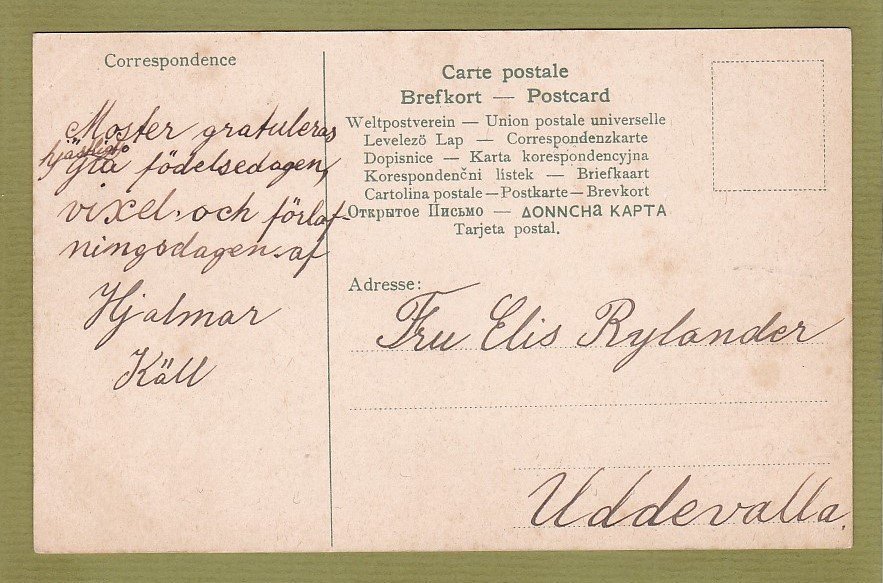 Correspondence
Moster gratuleras
hjärtligt
på födelsedagen,
vixel- och förlof-
ningsdagen af
Hjalmar
Käll
Carte postale
Brefkort — Postcard
Weltpostverein — Union postale universelle
Levelezö Lap — Correspondenzkarte
Dopisnice — Karta korespondencyjna
Korespondenční listek — Briefkaart
Cartolina postale — Postkarte — Brevkort
Открытое Письмо — ΔONNCHa KAPTA
Tarjeta postal.
Adresse:
Fru Elis Rylander
Uddevalla.